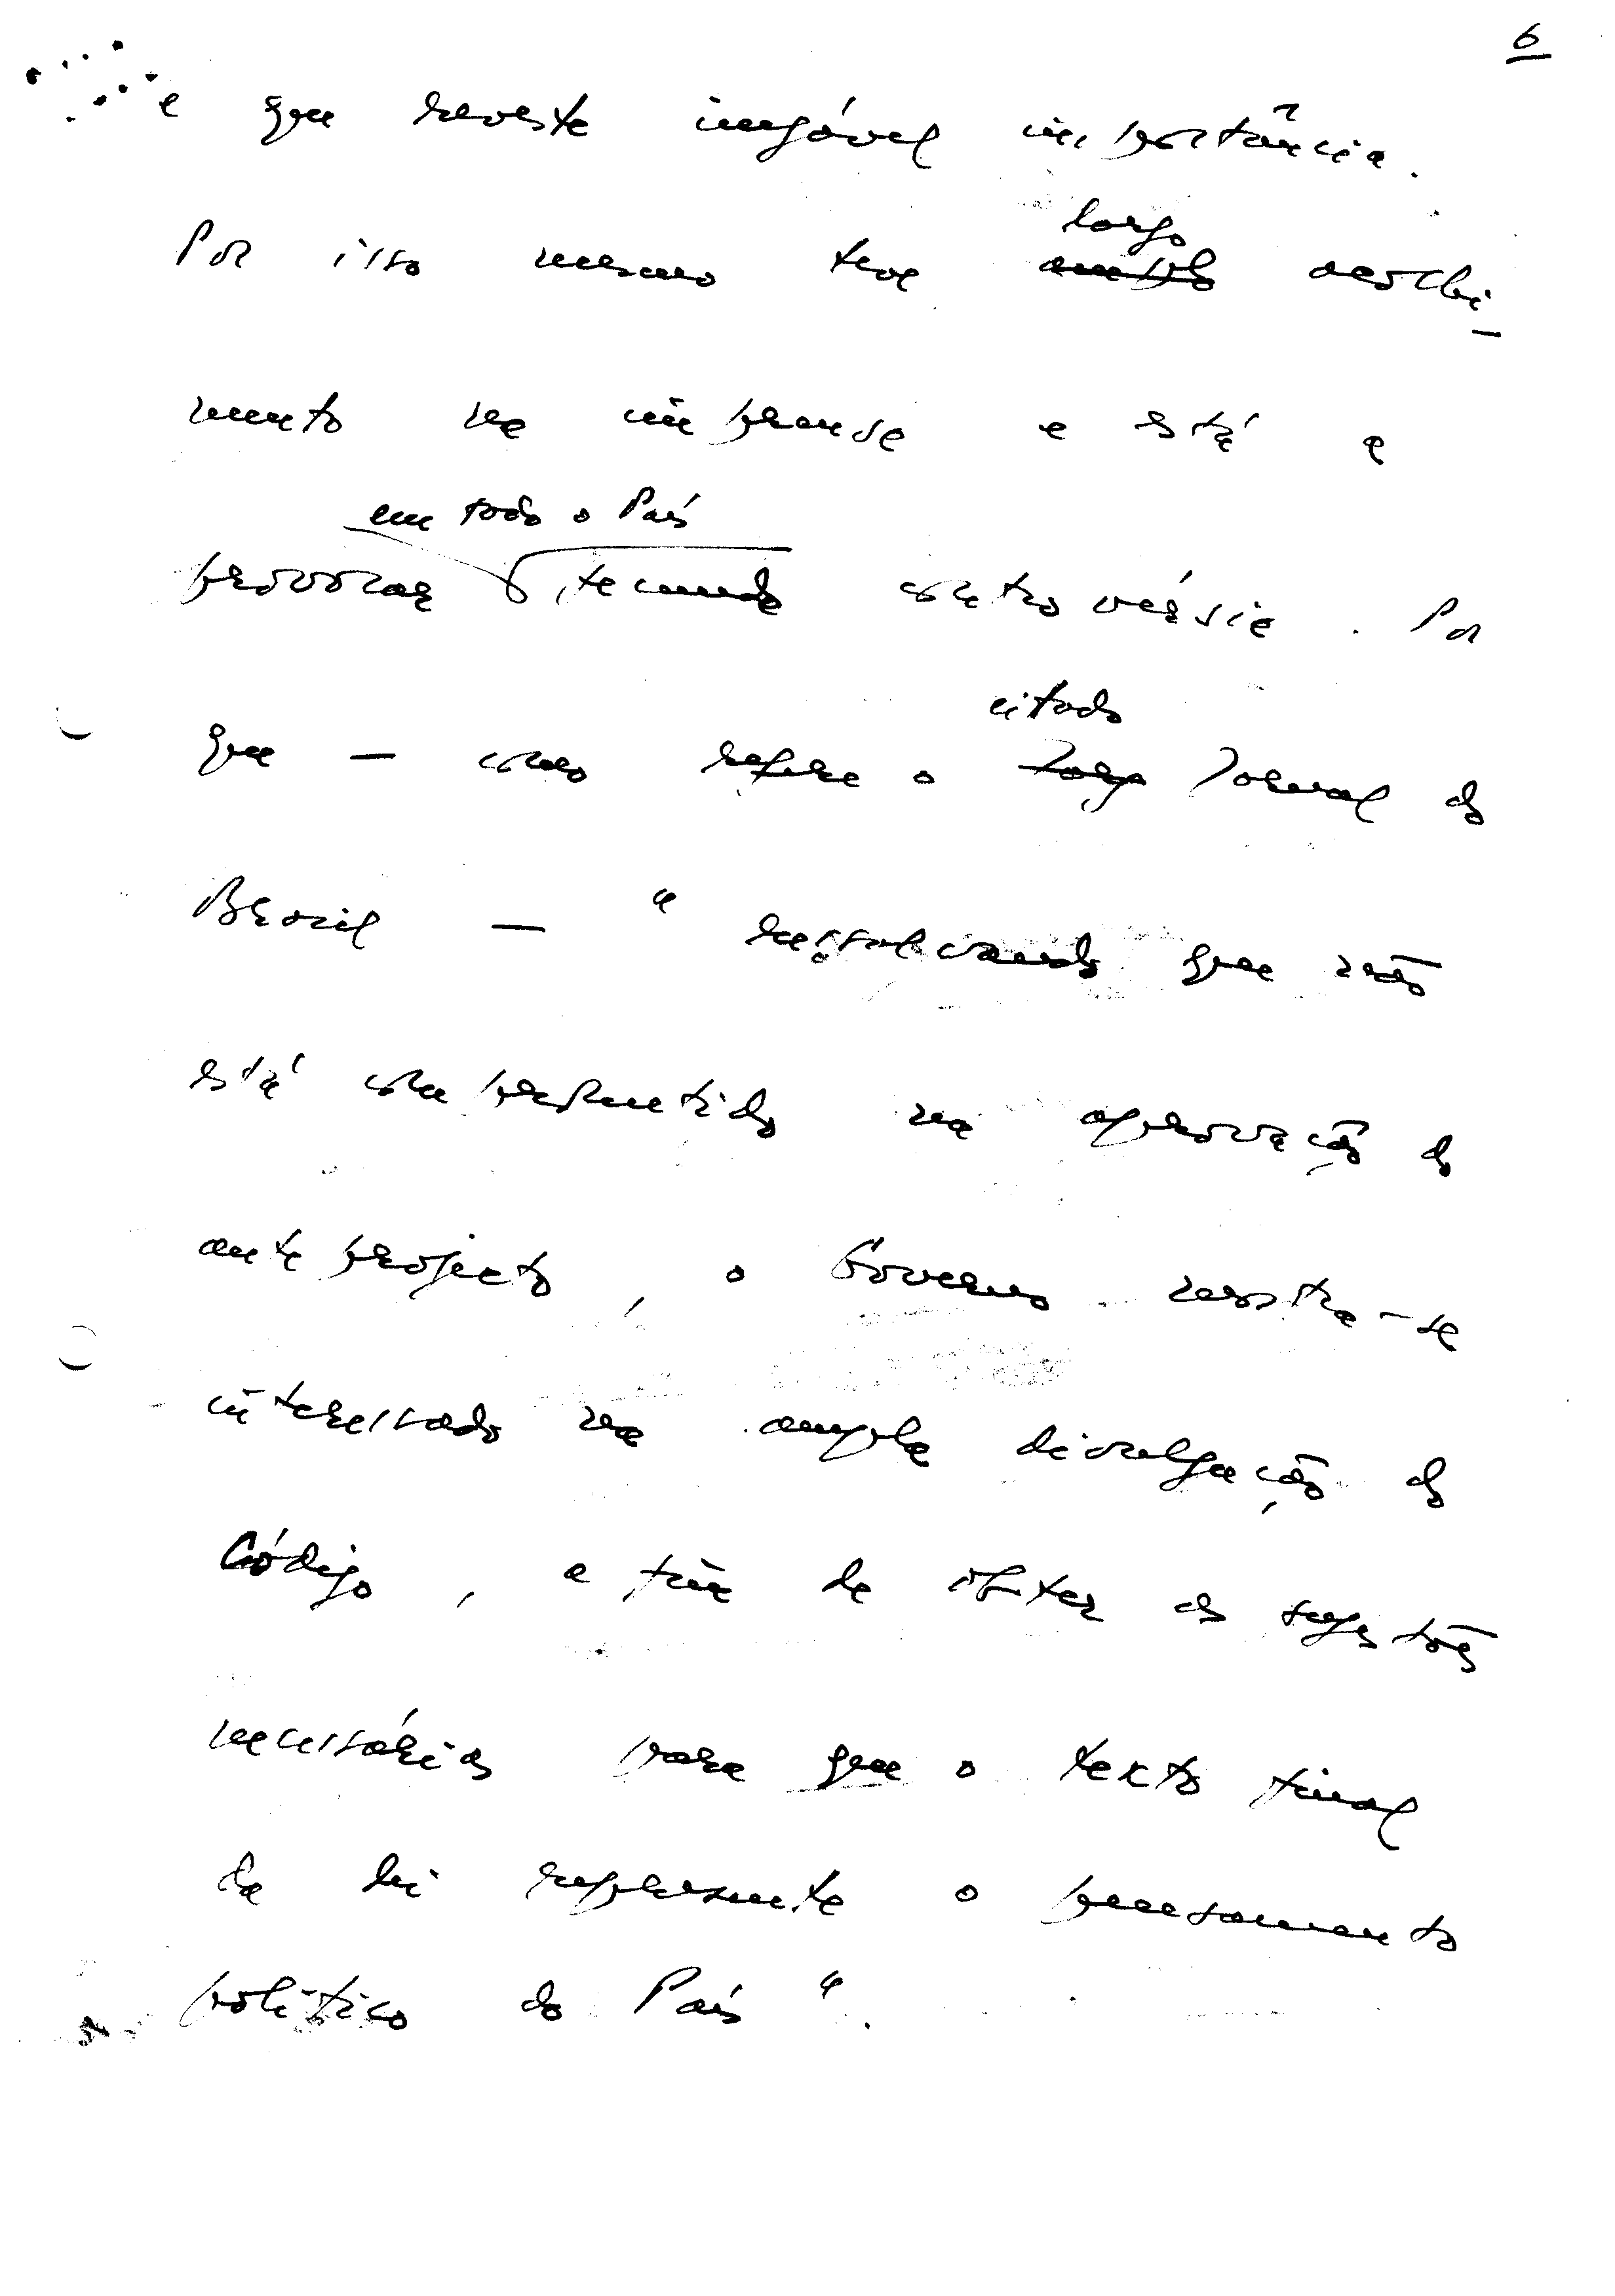 6
e que reveste inegável importância.
largo
Por isso mesmo teve amplo acolhi-
mento na imprensa e está a
em todo o País
provocar fecunda controvérsia. Por
citado
que — como refere o Jornal do
Brasil — " ressalvando que não
está comprometido na aprovação do
anteprojeto, o Governo mostra-se
interessado na ampla divulgação do
Código, a fim de obter as sugestões
necessárias para que o texto final
da lei represente o pensamento
político do País ".